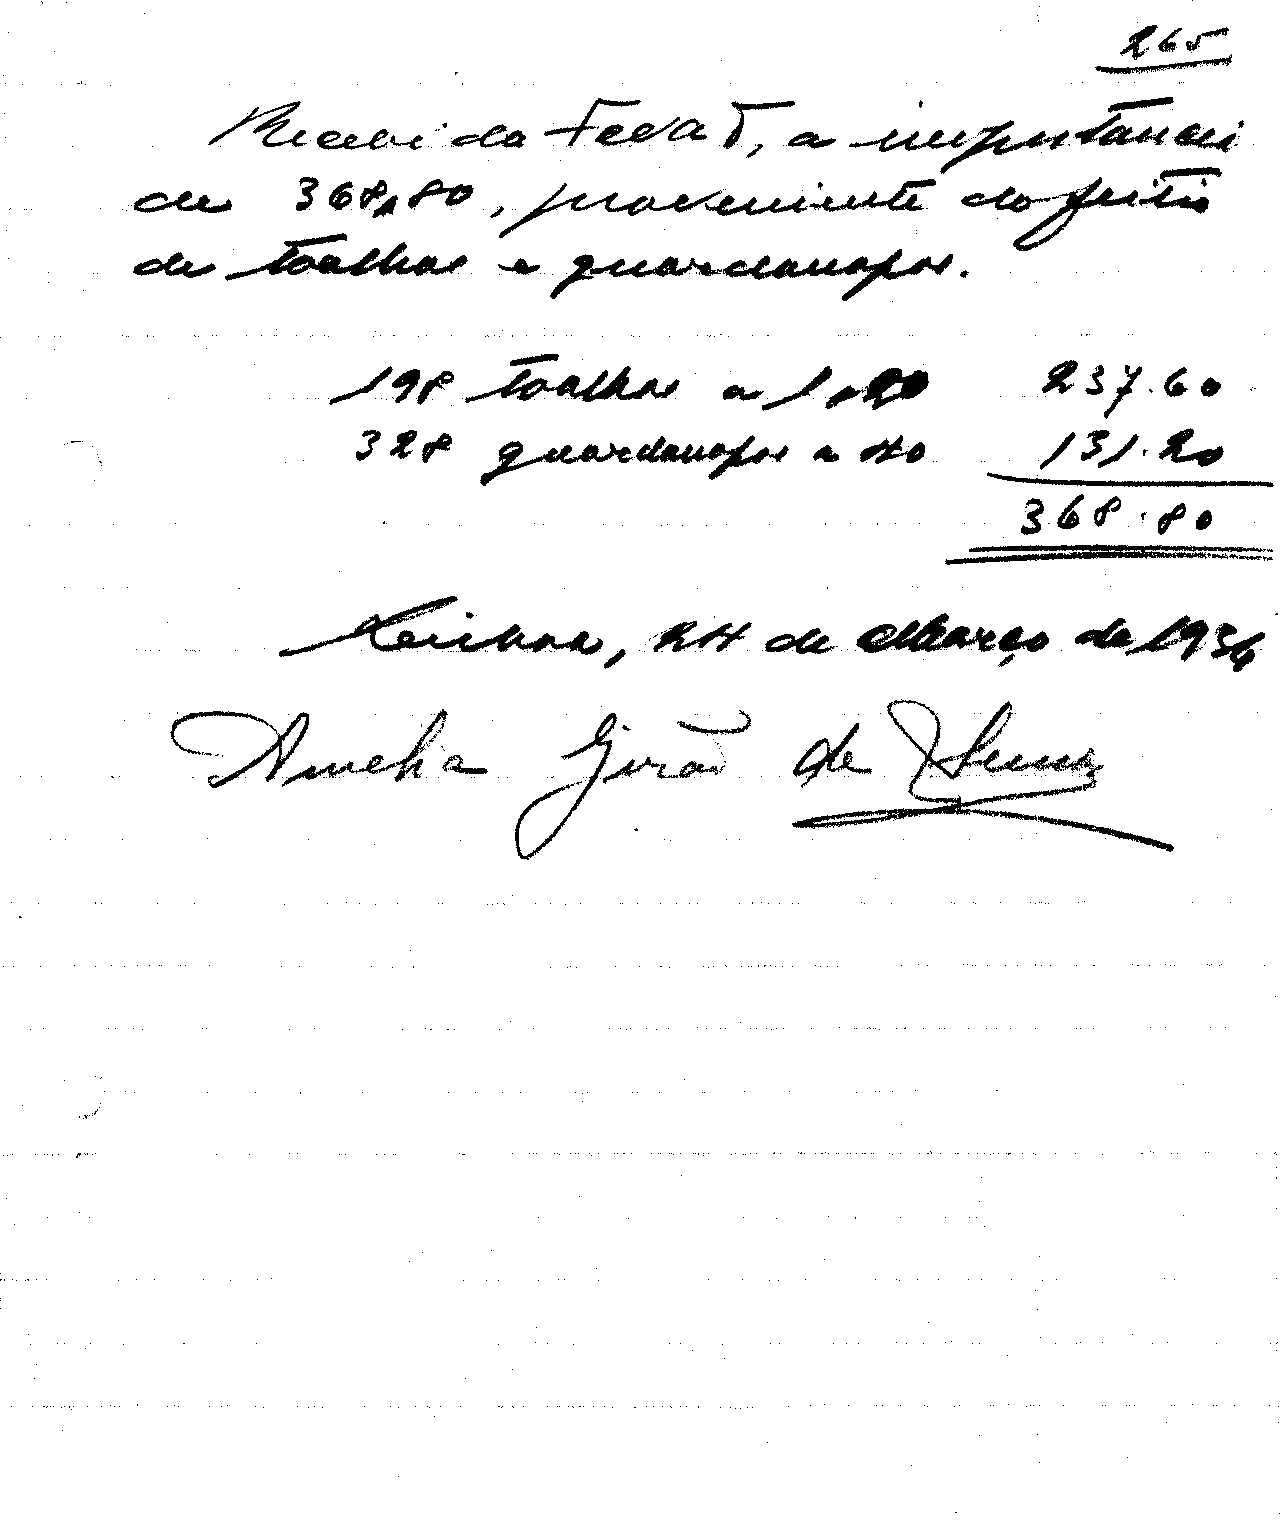 265
Recebi da Fecat, a importancia
de 368,80, proveniente do feitio
de toalhas e guardanapos.
198 toalhas a 1,20 237.60
328 guardanapos a 40 131.20
368.80
Lisboa, 24 de Março de 1936
Amelia Girão de